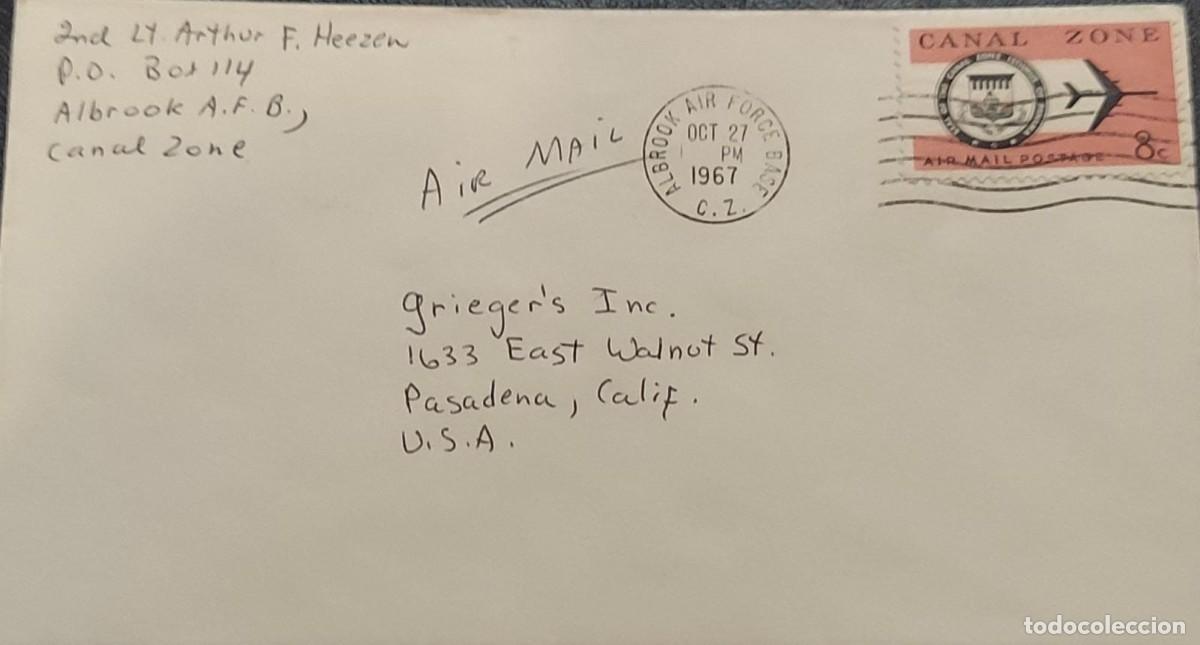 2nd Lt. Arthur F. Heezen
P.O. Box 114
Albrook A.F.B.,
Canal Zone
AIR MAIL
ALBROOK AIR FORCE BASE
OCT 27
PM
1967
C. Z.
CANAL ZONE
AIR MAIL POSTAGE 8c
Grieger's Inc.
1633 East Walnut St.
Pasadena, Calif.
U.S.A.
todocoleccion